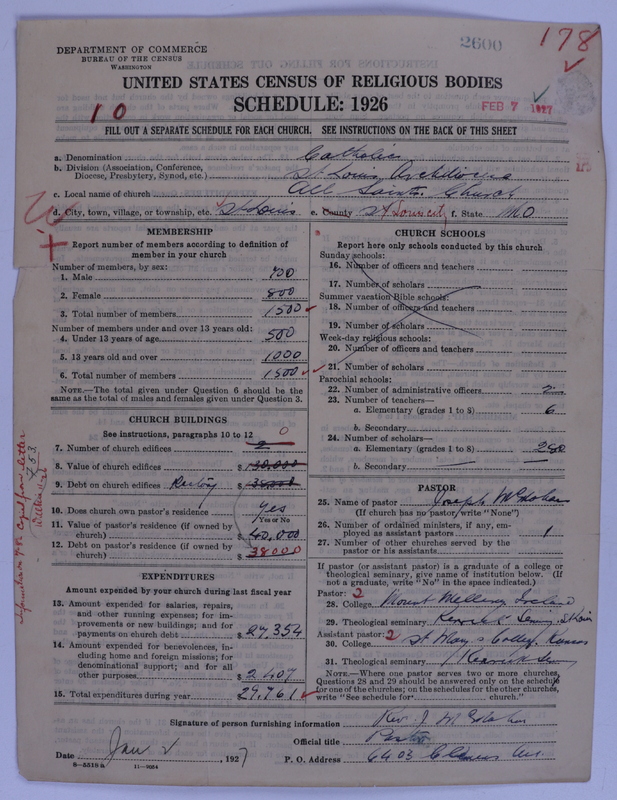 DEPARTMENT OF COMMERCE
BUREAU OF THE CENSUS
WASHINGTON
2600
178
UNITED STATES CENSUS OF RELIGIOUS BODIES
SCHEDULE: 1926
10
FEB 7 1927
FILL OUT A SEPARATE SCHEDULE FOR EACH CHURCH. SEE INSTRUCTIONS ON THE BACK OF THIS SHEET
a. Denomination Catholic
b. Division (Association, Conference, Diocese, Presbytery, Synod, etc.) St Louis Archdiocese
c. Local name of church All Saints Church
d. City, town, village, or township, etc. St Louis e. County St Louis city f. State MO
MEMBERSHIP
Report number of members according to definition of
member in your church
Number of members, by sex:
1. Male 700
2. Female 800
3. Total number of members 1500
Number of members under and over 13 years old:
4. Under 13 years of age 500
5. 13 years old and over 1000
6. Total number of members 1500
NOTE.—The total given under Question 6 should be
same as the total of males and females given under Question 3.
CHURCH BUILDINGS
See instructions, paragraphs 10 to 12
0
7. Number of church edifices 2
8. Value of church edifices $ 130,000
9. Debt on church edifices $ 38000
10. Does church own pastor's residence? Yes
Yes or No
11. Value of pastor's residence (if owned by
church) $ 40,000
12. Debt on pastor's residence (if owned by
church) $ 38000
EXPENDITURES
Amount expended by church during last fiscal year
13. Amount expended for salaries, repairs,
and other running expenses; for im-
provements or new buildings; and for
payments on church debt $ 27,354
14. Amount expended for benevolences, in-
cluding home and foreign missions; for
denominational support; and for all
other purposes $ 2,407
15. Total expenditures during year $ 29,761
CHURCH SCHOOLS
Report here only schools conducted by this church
Sunday schools:
16. Number of officers and teachers
17. Number of scholars
Summer vacation Bible schools:
18. Number of officers and teachers
19. Number of scholars
Week-day religious schools:
20. Number of officers and teachers
21. Number of scholars
Parochial schools:
22. Number of administrative officers 2
23. Number of teachers—
a. Elementary (grades 1 to 8) 6
b. Secondary
24. Number of scholars—
a. Elementary (grades 1 to 8) 280
b. Secondary
PASTOR
25. Name of pastor Joseph
(If church has no pastor, write "None")
26. Number of ordained ministers, if any, em-
ployed as assistant pastors 1
27. Number of other churches served by the
pastor or his assistants
If pastor (or assistant pastor) is a graduate of a college or
theological seminary, give name of institution below. (If
not a graduate, write "No" in the space indicated.)
Pastor: 2
28. College Mount Mellerey Ireland
29. Theological seminary Kenrick Sem. St Louis
Assistant pastor: 2
30. College St Mary's College, Kansas
31. Theological seminary Kenrick Sem
NOTE.—Where one pastor serves two or more churches,
Questions 28 and 29 should be answered only on the schedule
for one of the churches; on the schedules for the other churches,
write "See schedule for church."
Signature of person furnishing information Rev. J.
Official title Pastor
Date Jan 2, 1927 P. O. Address 6403 Clemens Av.
8-5518a 11-9654